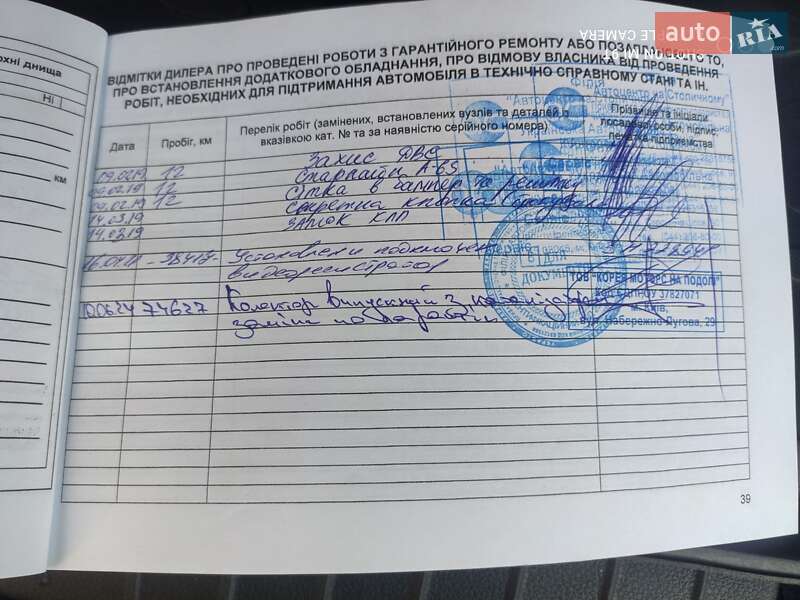 auto RIA.com
SHOT ON MI 9T
AI TRIPLE CAMERA
рхні днища
Ні
км
ВІДМІТКИ ДИЛЕРА ПРО ПРОВЕДЕНІ РОБОТИ З ГАРАНТІЙНОГО РЕМОНТУ АБО ПОЗАПЛАНОВОГО ТО,
ПРО ВСТАНОВЛЕННЯ ДОДАТКОВОГО ОБЛАДНАННЯ, ПРО ВІДМОВУ ВЛАСНИКА ВІД ПРОВЕДЕННЯ
РОБІТ, НЕОБХІДНИХ ДЛЯ ПІДТРИМАННЯ АВТОМОБІЛЯ В ТЕХНІЧНО СПРАВНОМУ СТАНІ ТА ІН.
Дата
Пробіг, км
Перелік робіт (замінених, встановлених вузлів та деталей із
вказівкою кат. № та за наявністю серійного номера)
Прізвище та ініціали
посадової особи, підпис,
печатка підприємства
Філія
"Автоцентр на Столичному"
Захис ДВЗ
09.02.19 12 Старлайн А-93
09.02.19 12 Сітка в бампер та решітку
09.02.19 12 секретна кнопка
14.03.19 замок КПП
14.03.19
38417 Установлен и подключен
видеорегистратор
10.06.24 74627 Колектор випускний з каталізатором
заміна по гарантії
ДЛЯ
ДОКУМЕНТІВ
ТОВ "КОРЕЯ МОТОРС НА ПОДОЛІ"
ЄДРПОУ 37827071
м. Київ,
вул. Набережно-Лугова, 29
39